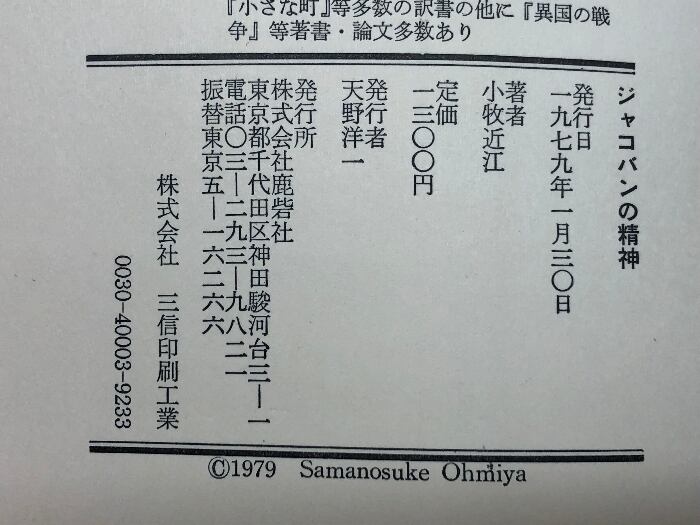 『小さな町』等多数の訳書の他に『異国の戦
争』等著書・論文多数あり
ジャコバンの精神
発行日
一九七九年一月三〇日
著者
小牧近江
定価
一三〇〇円
発行者
天野洋一
発行所
株式会社鹿砦社
東京都千代田区神田駿河台三―一
電話〇三―二九三―九八二一
振替東京五―一六二六六
株式会社 三信印刷工業
0030-40003-9233
©1979 Samanosuke Ohmiya